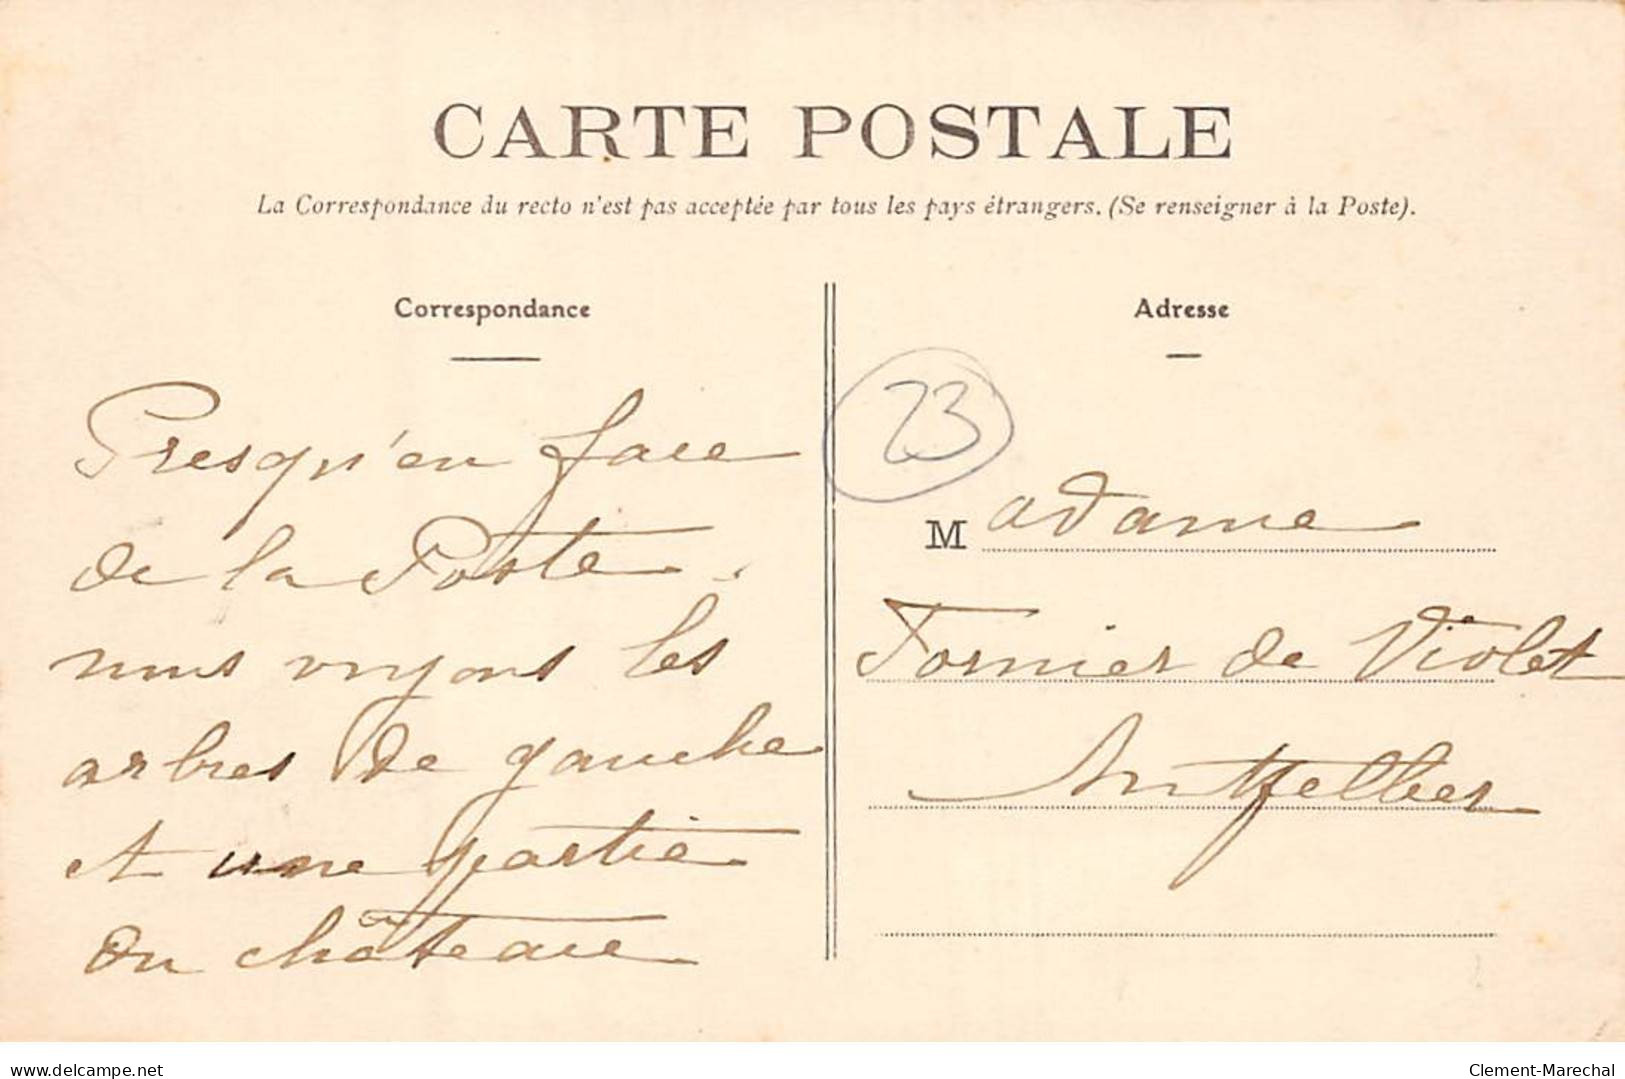 CARTE POSTALE
La Correspondance du recto n'est pas acceptée par tous les pays étrangers. (Se renseigner à la Poste).
Correspondance
Presqu'en face
de la Poste,
nous voyons les
arbres de gauche
et une partie
du château
Adresse
23
Madame
Fornier de Violet
Montpellier
delcampe.net
Clement-Marechal